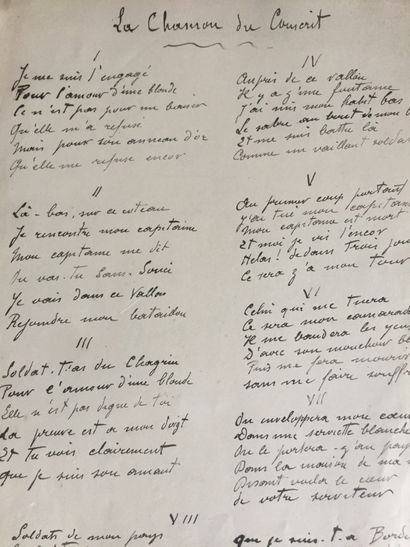 La Chanson du Conscrit
I
Je me suis t'engagé
Pour l'amour d'une blonde
Ce n'est pas pour un baiser
Qu'elle m'a refusé
Mais pour son anneau d'or
Qu'elle me refuse encor
II
Là-bas, sur ce coteau
Je rencontre mon capitaine
Mon capitaine me dit
Ou vas-tu Sans-Souci
Je vais dans ce Vallon
Rejoindre mon bataillon
III
Soldat-t-as du Chagrin
Pour l'amour d'une blonde
Elle n'est pas digne de toi
La preuve est a mon doigt
Et tu vois clairement
Que je suis son amant
IV
Auprès de ce vallon
Il y a z'une fontaine
J'ai mis mon habit bas
Le sabre au bout de mon b
Et me suis battu là
Comme un vaillant solda
V
Au premier coup portant
J'ai tué mon capitaine
Mon capitaine est mort
Et moi je vis t'encor
Helas! dedans trois jou
Ce sera z'a mon tour
VI
Celui qui me tuera
Ce sera mon camarade
Il me bandera les yeux
D'avec son mouchoir b
Puis me fera mourir
sans me faire souffr
VII
On enveloppera mon cœur
Dans une serviette blanche
On le portera-z'au pay
Dans la maison de ma
Disant voila le cœur
de votre serviteur
VIII
Soldats de mon pays
que je suis-t-a Bord